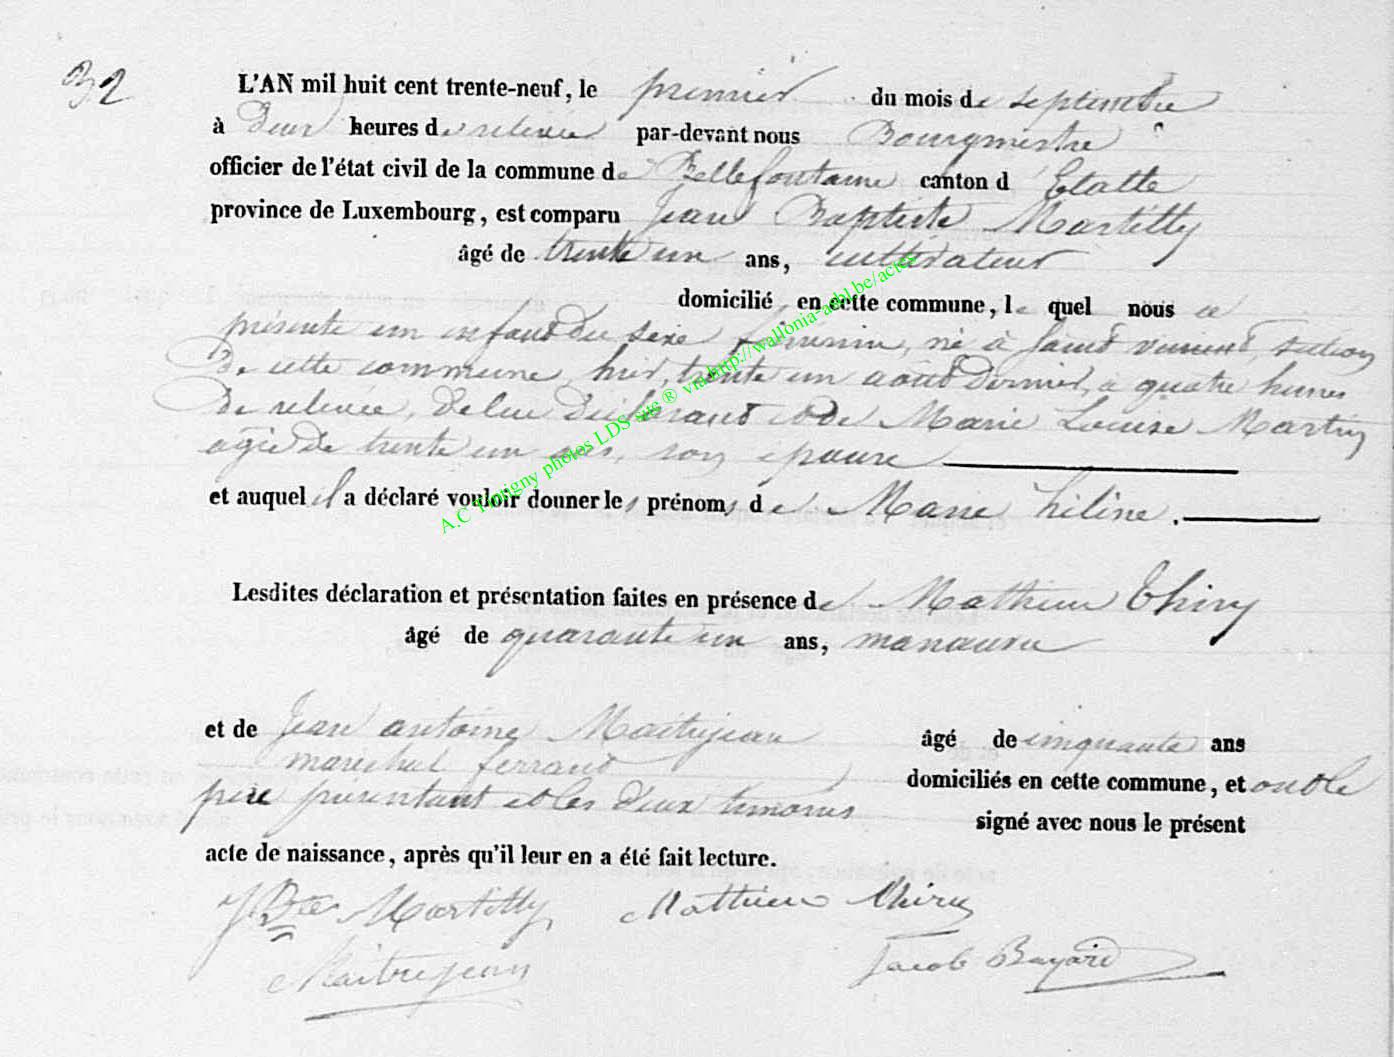 32
L'AN mil huit cent trente-neuf, le premier du mois de septembre
à Deux heures de relevée par-devant nous Bourgmestre
officier de l'état civil de la commune de Bellefontaine canton d'Etalle
province de Luxembourg, est comparu Jean Baptiste Martilly
âgé de trente un ans, cultivateur
domicilié en cette commune, le quel nous a
présenté un enfant du sexe féminin, né à Saint vincent section
De cette commune, hier, trente un août Dernier, à quatre heures
De relevée, De lui Déclarant et de Marie Louise Martin
agée De trente un ans, son epouse
et auquel il a déclaré vouloir donner les prénoms de Marie héline.
Lesdites déclaration et présentation faites en présence de Mathieu Thiry
âgé de quarante un ans, manœuvre
et de Jean antoine Maitrejean âgé de cinquante ans
maréchal ferrant domiciliés en cette commune, et ont le
père présentant et les deux temoins signé avec nous le présent
acte de naissance, après qu'il leur en a été fait lecture.
J Bte Martilly Mathieu Thiry
Maitrejean Jacob Bayard
A.C Tintigny photos LDS site ® via http://wallonia-asbl.be/actes